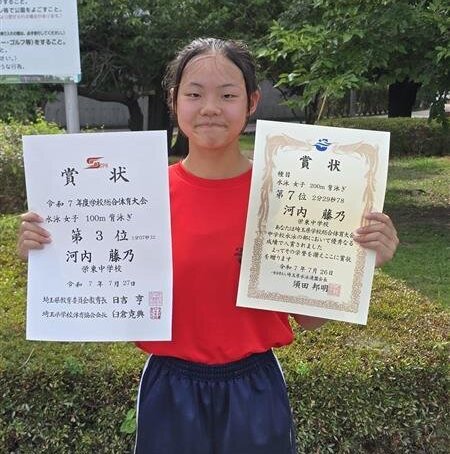 で公園をよごすこと。
ー・ゴルフ等)をすること。
うな行為。
賞状
令和7年度学校総合体育大会
水泳 女子 100m 背泳ぎ
第3位
河内 藤乃
栄東中学校
令和7年7月27日
埼玉県教育委員会教育長 日吉 亨
埼玉県小学校体育協会会長 臼倉克典
賞状
種目
水泳 女子 200m 背泳ぎ
第7位 2分29秒78
河内 藤乃
栄東中学校
あなたは埼玉県学校総合体育大会
中学校水泳の部において優秀なる
成績で入賞されました
よってその栄誉を讃えここに賞状
を贈ります
令和7年7月26日
須田 邦明